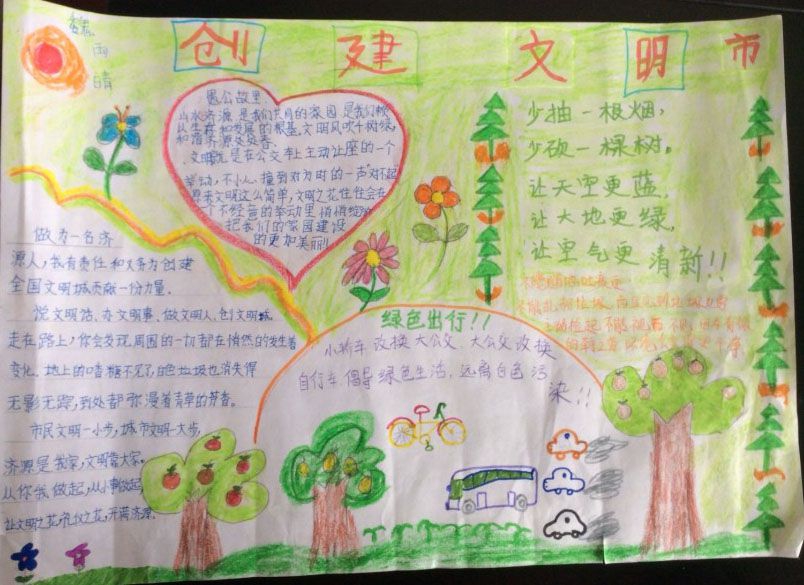 魏
雨
晴
创建文明市
愚公故里
山水济源,是我们共同的家园,是我们赖
以生存和发展的根基,文明风吹千树绿,
和谐济源处处春。
文明就是在公交车上主动让座的一个
举动,不小心撞到对方时的一声"对不起"
原来文明这么简单,文明之花往往会在
个不经营的举动里悄悄绽放
把我们的家园建设
的更加美丽!
少抽一根烟,
少砍一棵树。
让天空更蓝,
让大地更绿,
让空气更清新!!
做为一名济
源人,我有责任和义务为创建
全国文明城贡献一份力量.
说文明话、办文明事、做文明人、创文明城.
走在路上,你会发现周围的一切都在悄然的发生着
变化.地上的口香糖不见了,白色垃圾也消失得
无影无踪,到处都弥漫着青草的芳香。
市民文明一小步,城市文明一大步,
济源是我家,文明靠大家。
从你我做起,从小事做起,
让文明之花,礼仪之花,开满济源.
绿色出行!!
小轿车改换大公交,大公交改换
自行车,倡导绿色生活,远离白色污
染!!